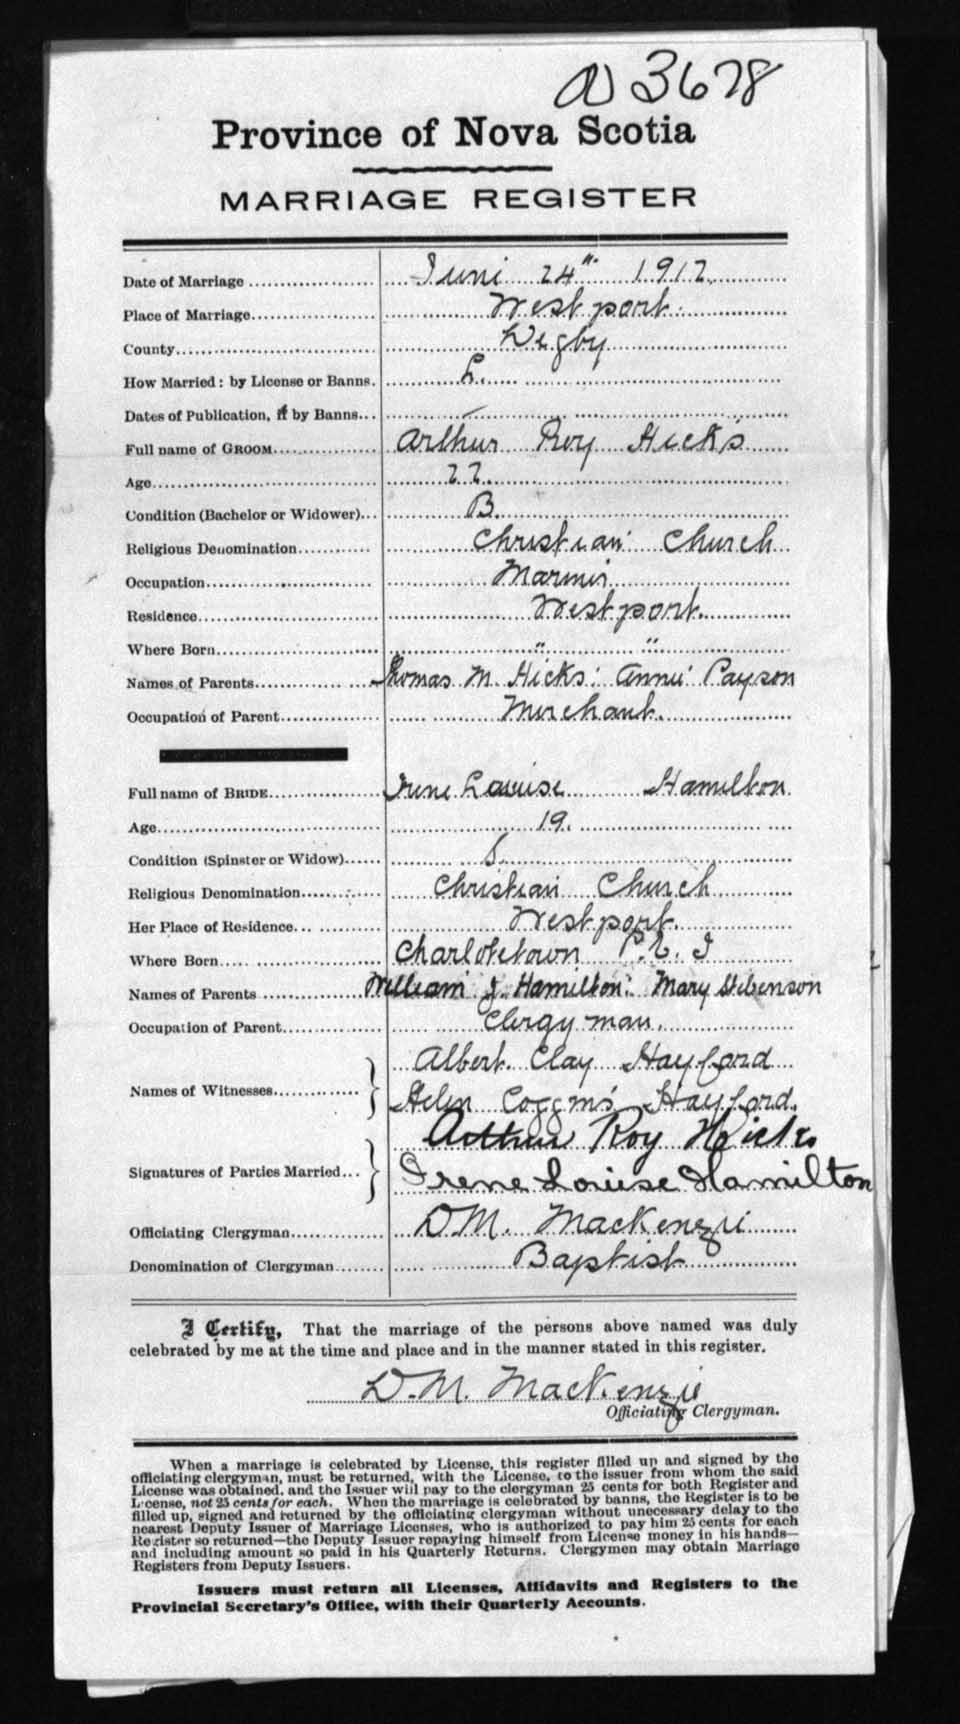 A 3678
Province of Nova Scotia
MARRIAGE REGISTER
Date of Marriage June 24" 1912
Place of Marriage Westport
County Digby
How Married: by License or Banns. L.
Dates of Publication, if by Banns —
Full name of GROOM Arthur Roy Hicks
Age 22
Condition (Bachelor or Widower) B.
Religious Denomination Christian Church
Occupation Mariner
Residence Westport.
Where Born " "
Names of Parents Thomas M. Hicks: Annie Payson
Occupation of Parent Merchant.
Full name of BRIDE Irene Louise Hamilton
Age 19.
Condition (Spinster or Widow) S.
Religious Denomination Christian Church
Her Place of Residence Westport.
Where Born Charlotetown P. E. I
Names of Parents William J. Hamilton: Mary Stevenson
Occupation of Parent Clergyman.
Albert Clay Hayford
Names of Witnesses
Helen Coggins Hayford.
Arthur Roy Hicks
Signatures of Parties Married
Irene Louise Hamilton
Officiating Clergyman D. M. MacKenzie
Denomination of Clergyman Baptist
I Certify, That the marriage of the persons above named was duly
celebrated by me at the time and place and in the manner stated in this register.
D. M. MacKenzie
Officiating Clergyman.
When a marriage is celebrated by License, this register filled up and signed by the
officiating clergyman, must be returned, with the License, to the issuer from whom the said
License was obtained, and the Issuer will pay to the clergyman 25 cents for both Register and
License, not 25 cents for each. When the marriage is celebrated by banns, the Register is to be
filled up, signed and returned by the officiating clergyman without unnecessary delay to the
nearest Deputy Issuer of Marriage Licenses, who is authorized to pay him 25 cents for each
Register so returned—the Deputy Issuer repaying himself from License money in his hands—
and including amount so paid in his Quarterly Returns. Clergymen may obtain Marriage
Registers from Deputy Issuers.
Issuers must return all Licenses, Affidavits and Registers to the
Provincial Secretary's Office, with their Quarterly Accounts.